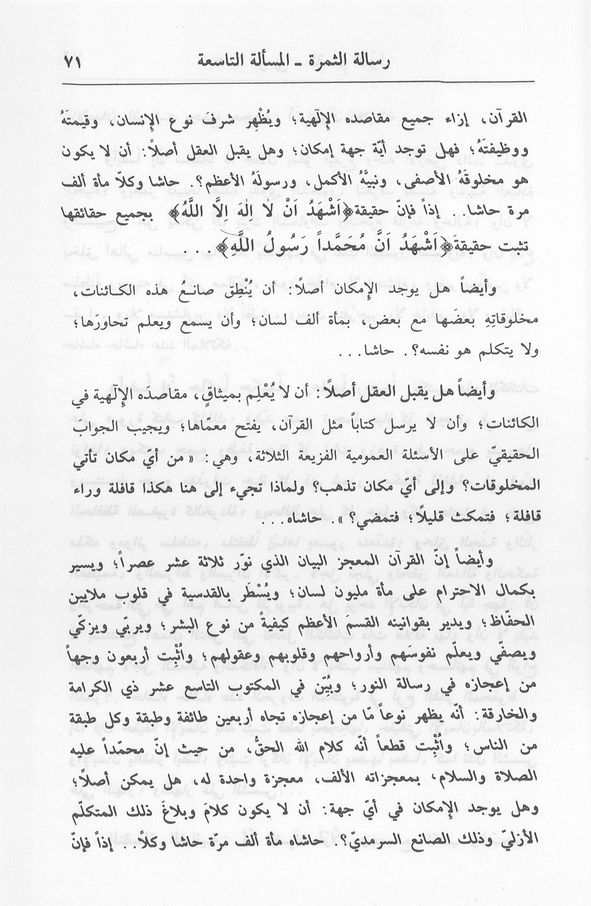 رسالة الثمرة ـ المسألة التاسعة ٧١
القرآن، إزاء جميع مقاصده الإلٓهية؛ ويُظْهِر شرفَ نوع الإنسان، وقيمتَهُ
ووظيفتَهُ؛ فهل توجد أيّة جهة إمكان؛ وهل يقبل العقل أصلاً: أن لا يكون
هو مخلوقَهُ الأصفى، ونبيَّهُ الأكمل، ورسولَهُ الأعظم؟. حاشا وكلّا مأة ألف
مرة حاشا.. إذاً فإنّ حقيقة﴿اَشْهَدُ اَنْ لٰا اِلٰهَ اِلَّا اللَّهُ﴾ بجميع حقائقها
تثبت حقيقة﴿اَشْهَدُ اَنَّ مُحَمَّداً رَسُولُ اللَّهِ﴾...
وأيضاً هل يوجد الإمكان أصلاً: أن يُنْطِق صانعُ هذه الكائنات،
مخلوقاتِهِ بعضَها مع بعض، بمأة ألف لسان؛ وأن يسمع ويعلم تحاورَها؛
ولا يتكلم هو نفسه؟. حاشا...
وأيضاً هل يقبل العقل أصلاً: أن لا يُعْلِم بميثاقٍ، مقاصدَه الإلٓهية في
الكائنات؛ وأن لا يرسل كتاباً مثل القرآن، يفتح معمّاها؛ ويجيب الجوابَ
الحقيقيّ على الأسئلة العمومية الفزيعة الثلاثة، وهي: «من أيّ مكان تأتي
المخلوقات؟ وإلى أيّ مكان تذهب؟ ولماذا تجيء إلى هنا هكذا قافلة وراء
قافلة؛ فتمكث قليلاً؛ فتمضي؟». حاشاه...
وأيضاً إنّ القرآن المعجز البيان الذي نوّر ثلاثة عشر عصراً؛ ويسير
بكمال الاحترام على مأة مليون لسان؛ ويُسْطَر بالقدسية في قلوب ملايين
الحفّاظ؛ ويدير بقوانينه القسمَ الأعظم كيفيةً من نوع البشر؛ ويربّي ويزكّي
ويصفّي ويعلّم نفوسَهم وأرواحهم وقلوبهم وعقولهم؛ وأُثْبِت أربعون وجهاً
من إعجازه في رسالة النور؛ وبُيِّن في المكتوب التاسع عشر ذي الكرامة
والخارقة: أنّه يظهر نوعاً مّا من إعجازه تجاه أربعين طائفة وطبقة وكل طبقة
من الناس؛ وأُثْبِت قطعاً أنّه كلام الله الحقُّ، من حيث إنّ محمّداً عليه
الصلاة والسلام، بمعجزاته الألف، معجزة واحدة له، هل يمكن أصلاً؛
وهل يوجد الإمكان في أيّ جهة: أن لا يكون كلامَ وبلاغَ ذلك المتكلّم
الأزليّ وذلك الصانع السرمديّ؟. حاشاه مأة ألف مرّة حاشا وكلّا.. إذاً فإنّ